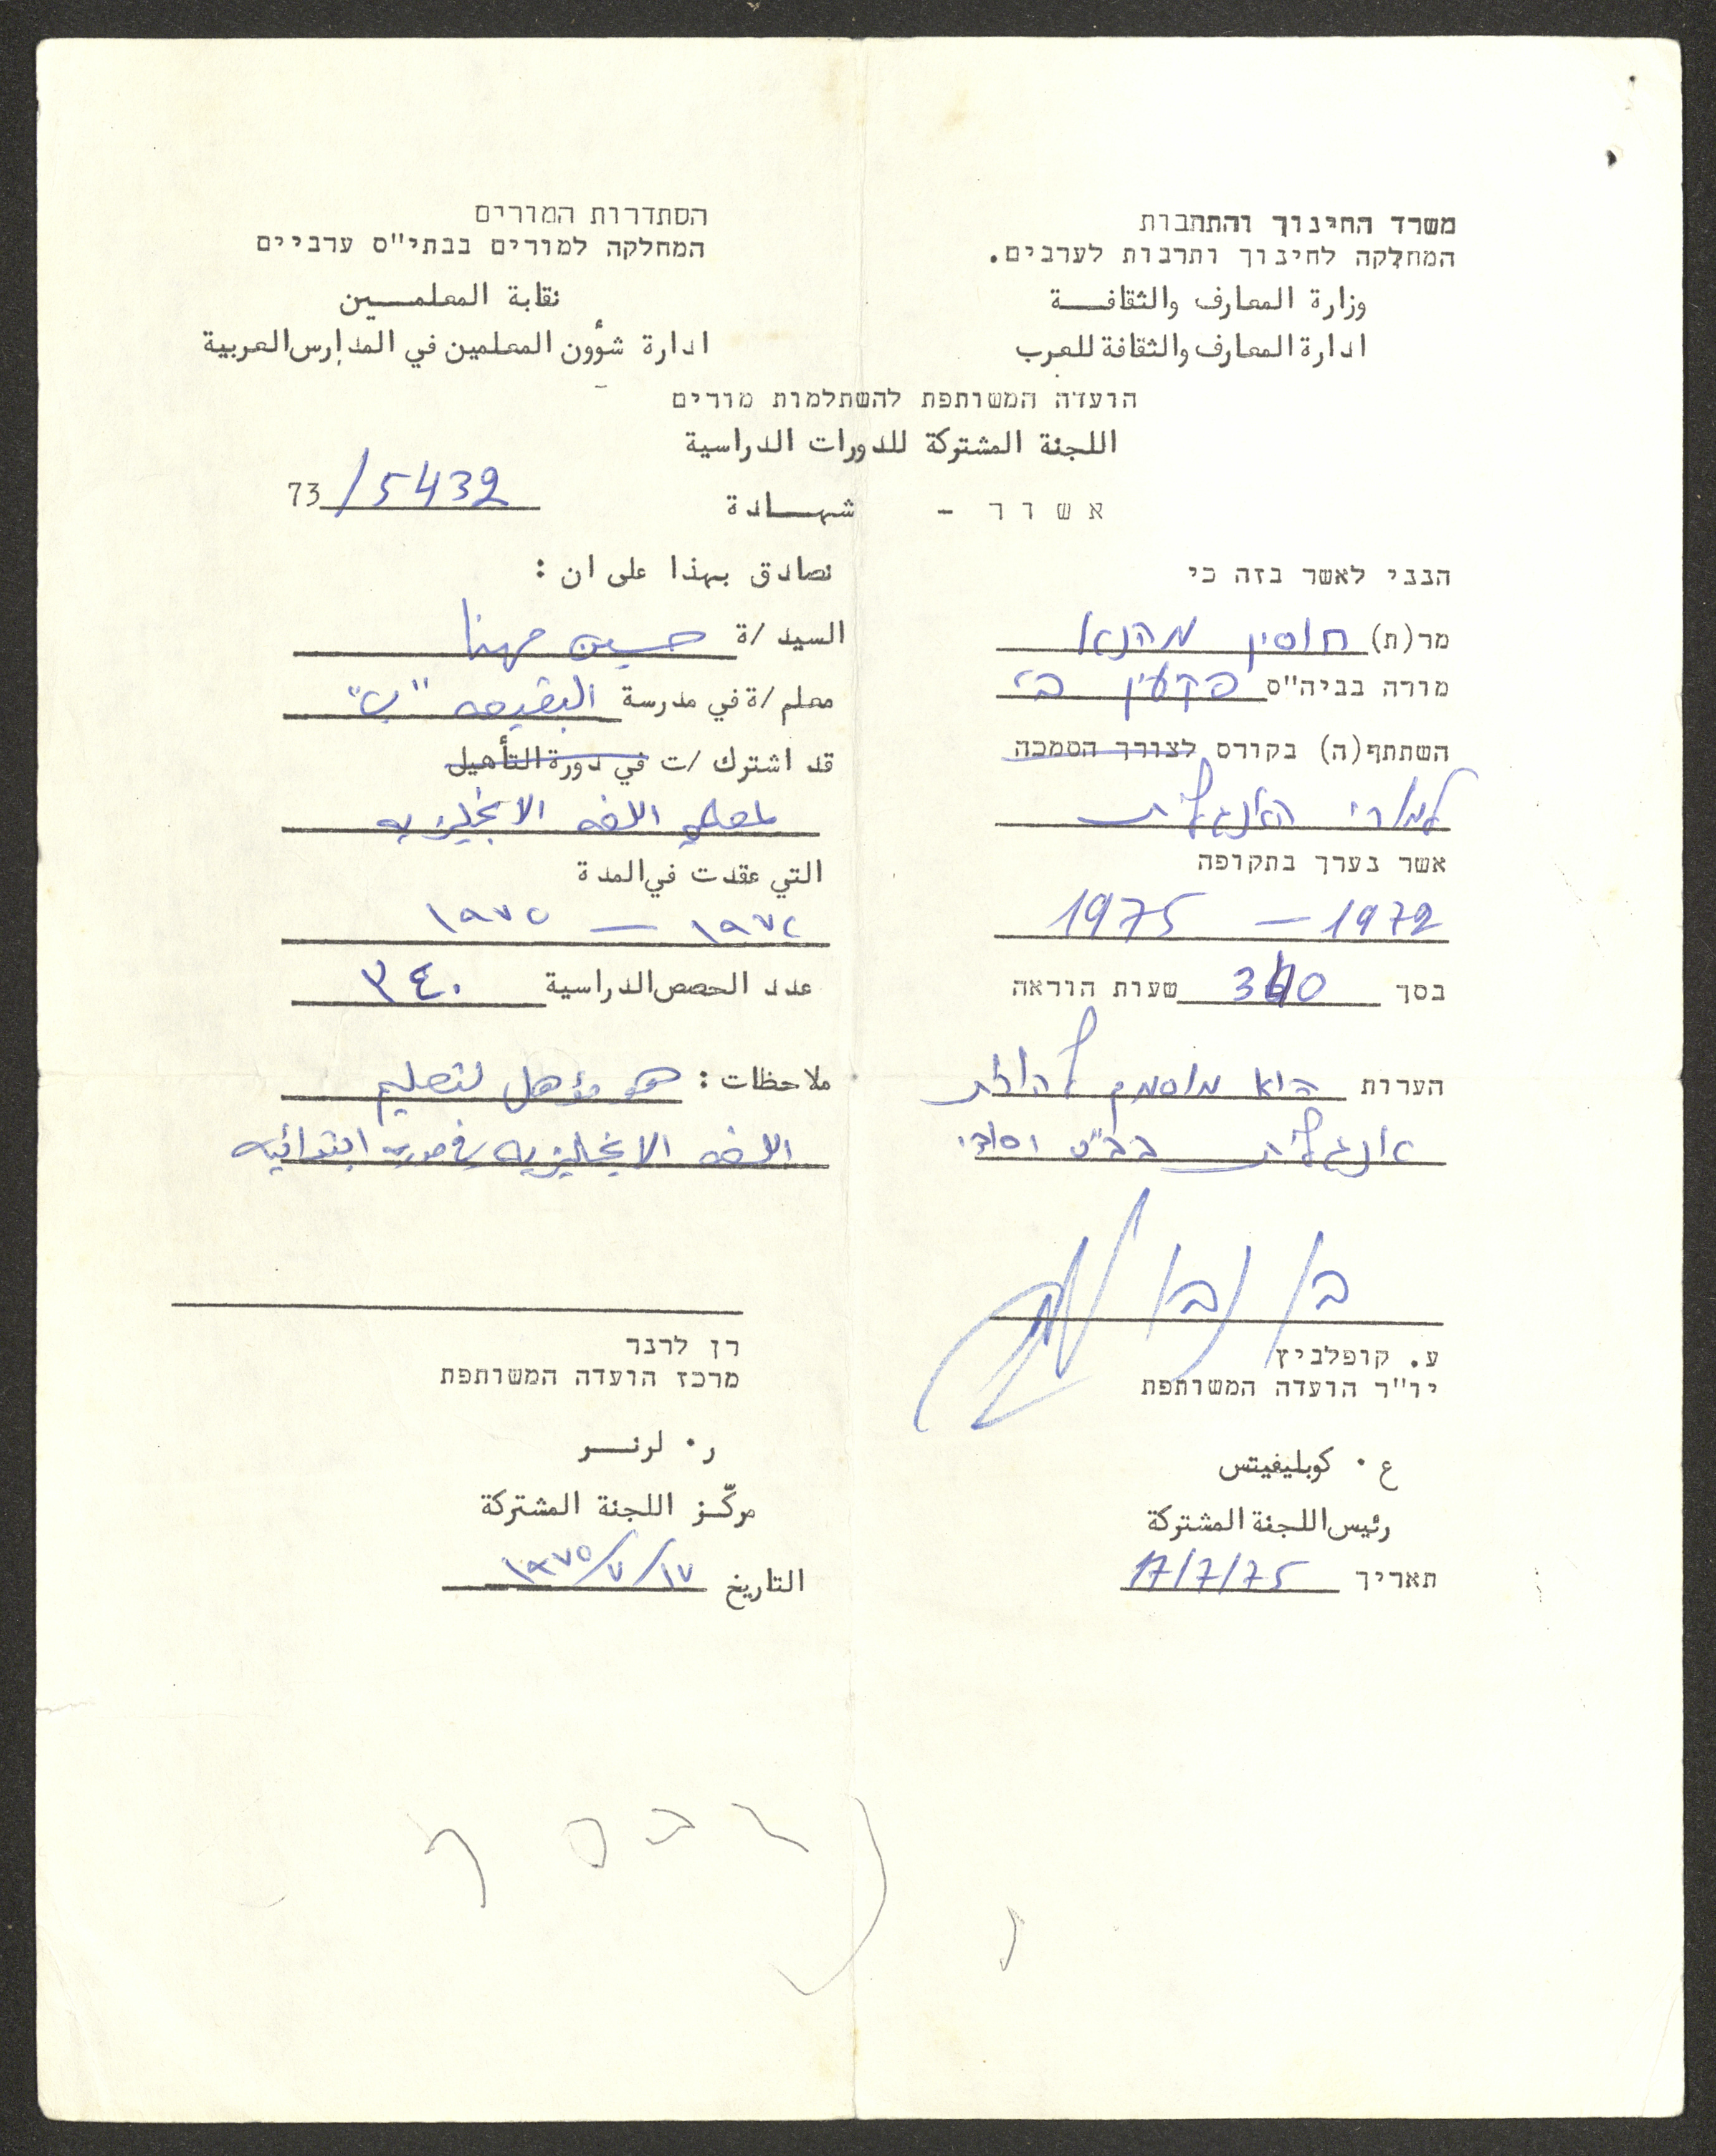 משרד החינוך והתרבות
המחלקה לחינוך ותרבות לערבים.
وزارة المعارف والثقافـــة
ادارة المعارف والثقافة للعرب
הסתדרות המורים
המחלקה למורים בבתי"ס ערביים
نقابة المعلمـــين
ادارة شؤون المعلمين في المدارس العربية
הועדה המשותפת להשתלמות מורים
اللجنة المشتركة للدورات الدراسية
73/5432
א ש ו ר - شهــادة
הנני לאשר בזה כי
מר(ת) חוסין מהנא
מורה בביה"ס פקיעין ב'
השתתף(ה) בקורס לצורך הסמכה
למורי האנגלית
אשר נערך בתקופה
1972 - 1975
בסך 340 שעות הוראה
הערות הוא מוסמך להורות
אנגלית בב"ס יסודי
ע. קופלביץ
יו"ר הועדה המשותפת
ع . كوبليفيتس
رئيس اللجنة المشتركة
תאריך 17/7/75
نصادق بهذا على ان :
السيد /ة حسين مهنا
معلم /ة في مدرسة البقيعه "ب"
قد اشترك /ت في دورة التأهيل
لمعلمي اللغه الانجليزيه
التي عقدت في المدة
١٩٧٢ — ١٩٧٥
عدد الحصص الدراسية ٣٤٠
ملاحظات : هو مؤهل لتعليم
اللغه الانجليزيه في مدرسه ابتدائيه
רן לרנר
מרכז הועדה המשותפת
ر . لرنـــر
مركّــز اللجنة المشتركة
التاريخ ١٩٧٥/٧/١٧